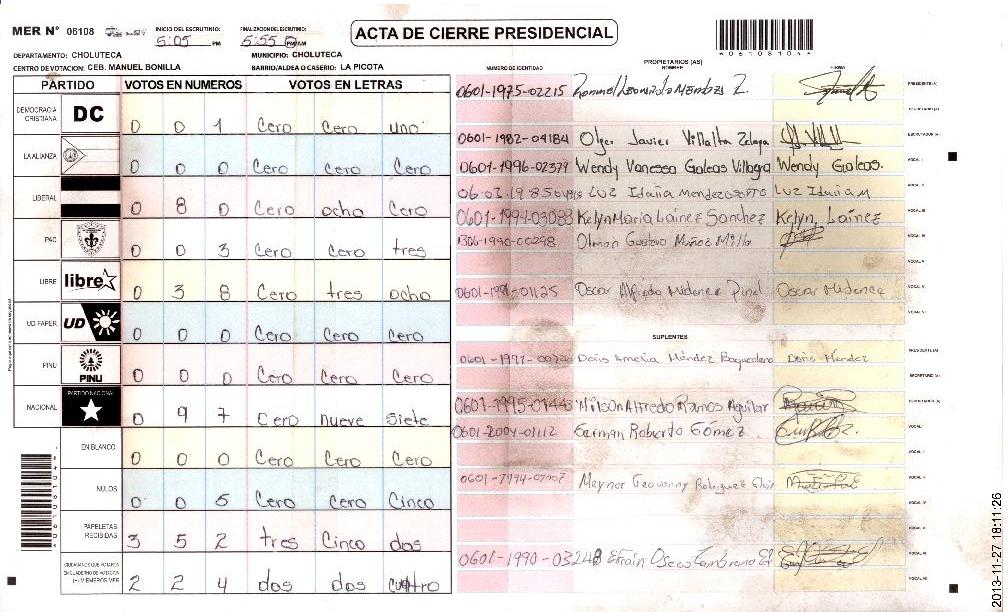 MER N° 06108 INICIO DEL ESCRUTINIO: 5:05 PM FINALIZACION DEL ESCRUTINIO: 5:55 PM ACTA DE CIERRE PRESIDENCIAL
DEPARTAMENTO: CHOLUTECA MUNICIPIO: CHOLUTECA
CENTRO DE VOTACION: CEB. MANUEL BONILLA BARRIO/ALDEA O CASERIO: LA PICOTA
PARTIDO VOTOS EN NUMEROS VOTOS EN LETRAS
DEMOCRACIA CRISTIANA DC 0 0 1 Cero Cero uno
LA ALIANZA 0 0 0 Cero Cero Cero
LIBERAL 0 8 0 Cero ocho Cero
PAC 0 0 3 Cero Cero tres
LIBRE libre 0 3 8 Cero tres ocho
UD-FAPER UD 0 0 0 Cero Cero Cero
PINU PINU 0 0 0 Cero Cero Cero
NACIONAL PARTIDO NACIONAL 0 9 7 Cero nueve siete
EN BLANCO 0 0 0 Cero Cero Cero
NULOS 0 0 5 Cero Cero Cinco
PAPELETAS RECIBIDAS 3 5 2 tres Cinco dos
CIUDADANOS QUE VOTARON EN CUADERNO DE VOTACION (+) MIEMBROS MER 2 2 4 dos dos cuatro
PROPIETARIOS (AS)
NUMERO DE IDENTIDAD NOMBRE FIRMA
0601-1975-02215 PRESIDENTE(A)
SECRETARIO (A)
0601-1982-04184 Olger Javier Villalta Zelaya ESCRUTADOR (A)
0601-1996-02379 Wendy Vanessa Galeas Villagra Wendy Galeas. VOCAL I
Luz Idania Mendoza Luz Idania M
0601-1994-03083 Kelyn Maria Lainez Sanchez Kelyn Lainez VOCAL III
1306-1990-00298 Olman Gustavo Muñoz Milla
Oscar Alfredo Midence Pinel Oscar Midence
SUPLENTES
Doris Amelia Méndez Doris Méndez PRESIDENTE (A)
SECRETARIO (A)
Wilson Alfredo Ramos Aguilar
0601-2004-01112 German Roberto Gómez VOCAL I
Meynor Geovanny
0601-1990-03248 Efrain Oscar Zambrano
2013-11-27 18:11:26